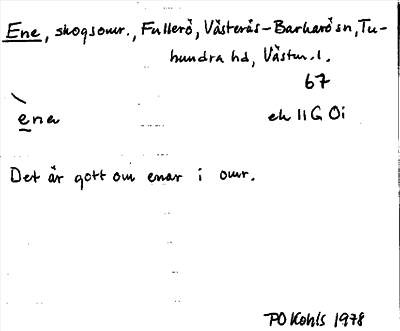 Ene, skogsomr., Fullerö, Västerås-Barkarö sn, Tu-
hundra hd, Västm. l.
67
èna
ek 11G 0i
Det är gott om enar i omr.
PO Kohls 1978